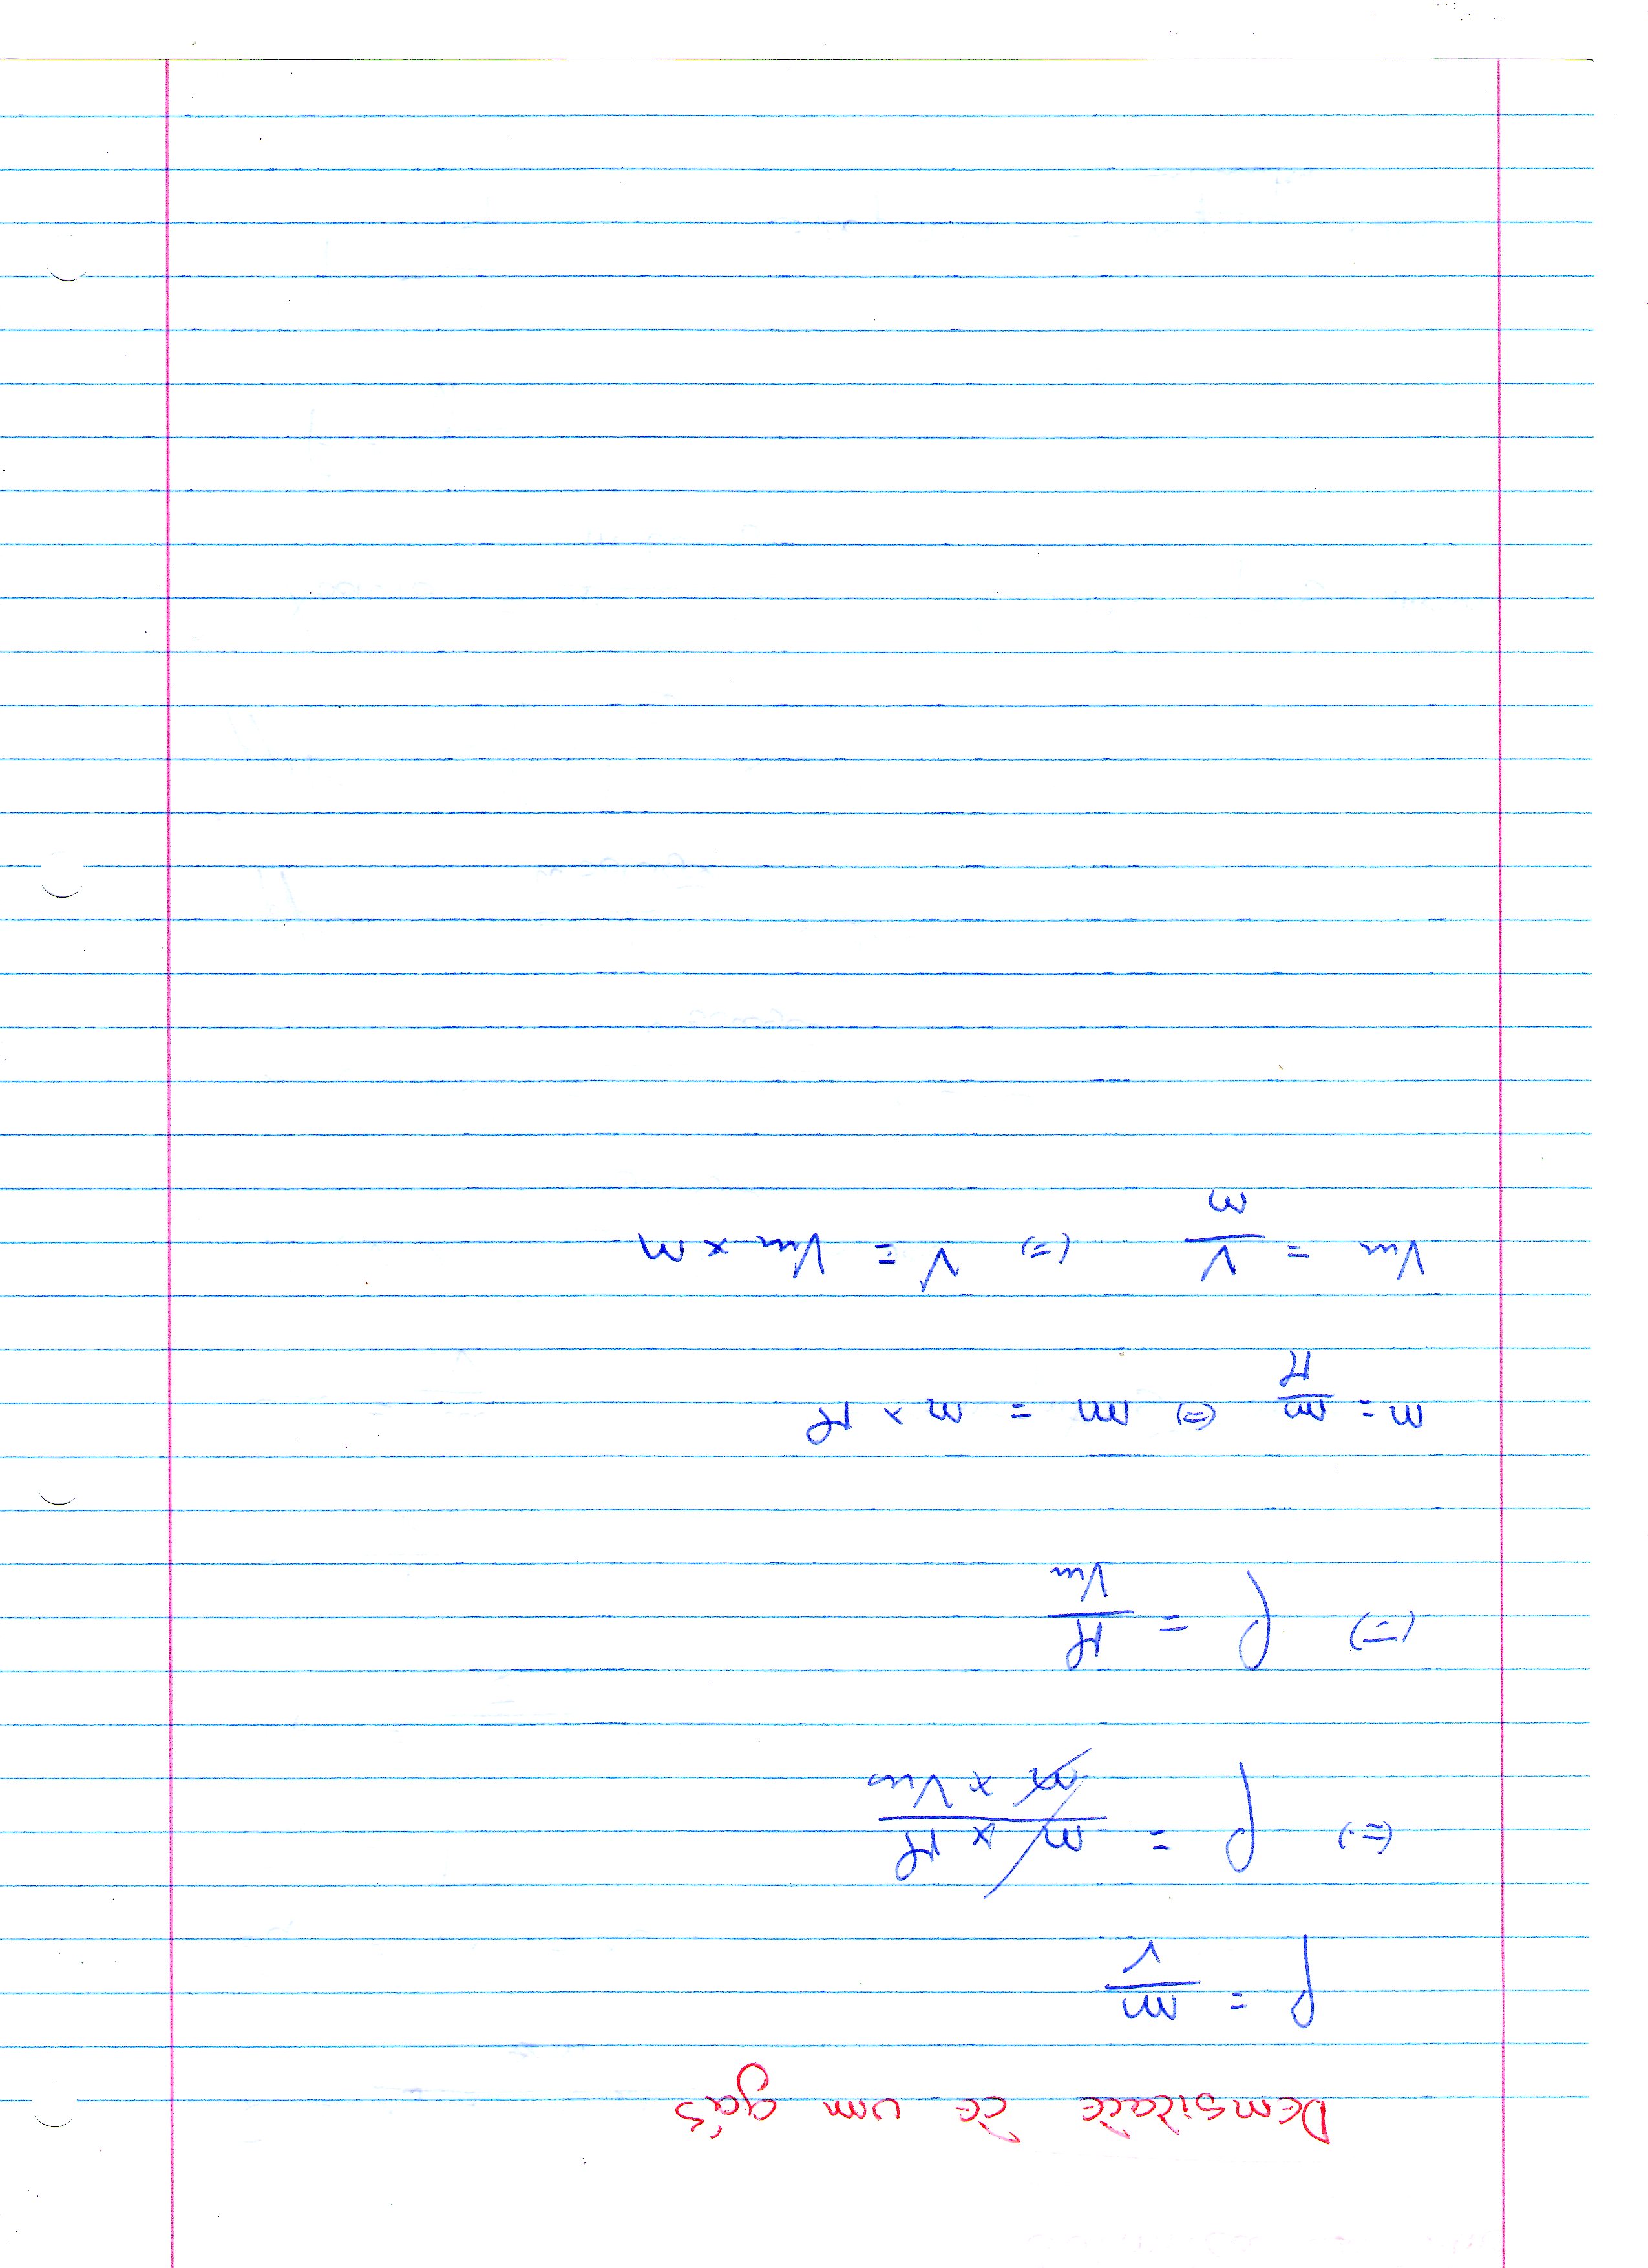 Densidade de um gás
ρ = m/V
(=) ρ = n × M / n × Vm
(=) ρ = M/Vm
n = m/M (=) m = n × M
Vm = V/n (=) V = Vm × n